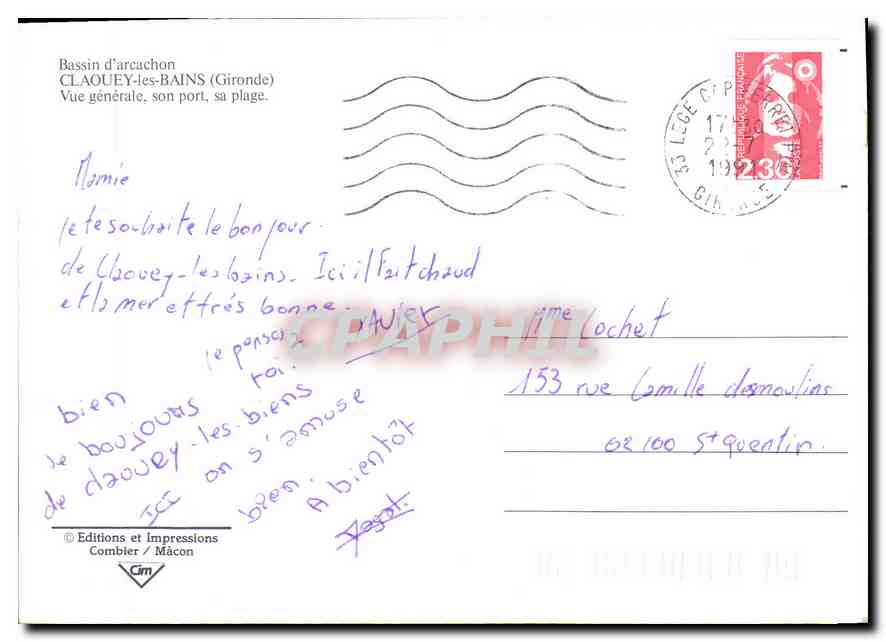 Bassin d'arcachon
CLAOUEY-les-BAINS (Gironde)
Vue générale, son port, sa plage.
33 LEGE CAP FERRET
22-7
GIRONDE
REPUBLIQUE FRANÇAISE
2,30
Mamie
je te souhaite le bonjour
de Claouey-les bains. Ici il Fait chaud
et la mer et trés bonne.
XAVIER
je
toi.
bien
le boujours
de claouey-les-biens
ici on s'amuse
bien.
A bientôt
Mme Cochet
153 rue Camille desmoulins
02100 St Quentin.
CPAPHIL
© Editions et Impressions
Combier / Mâcon
Cim